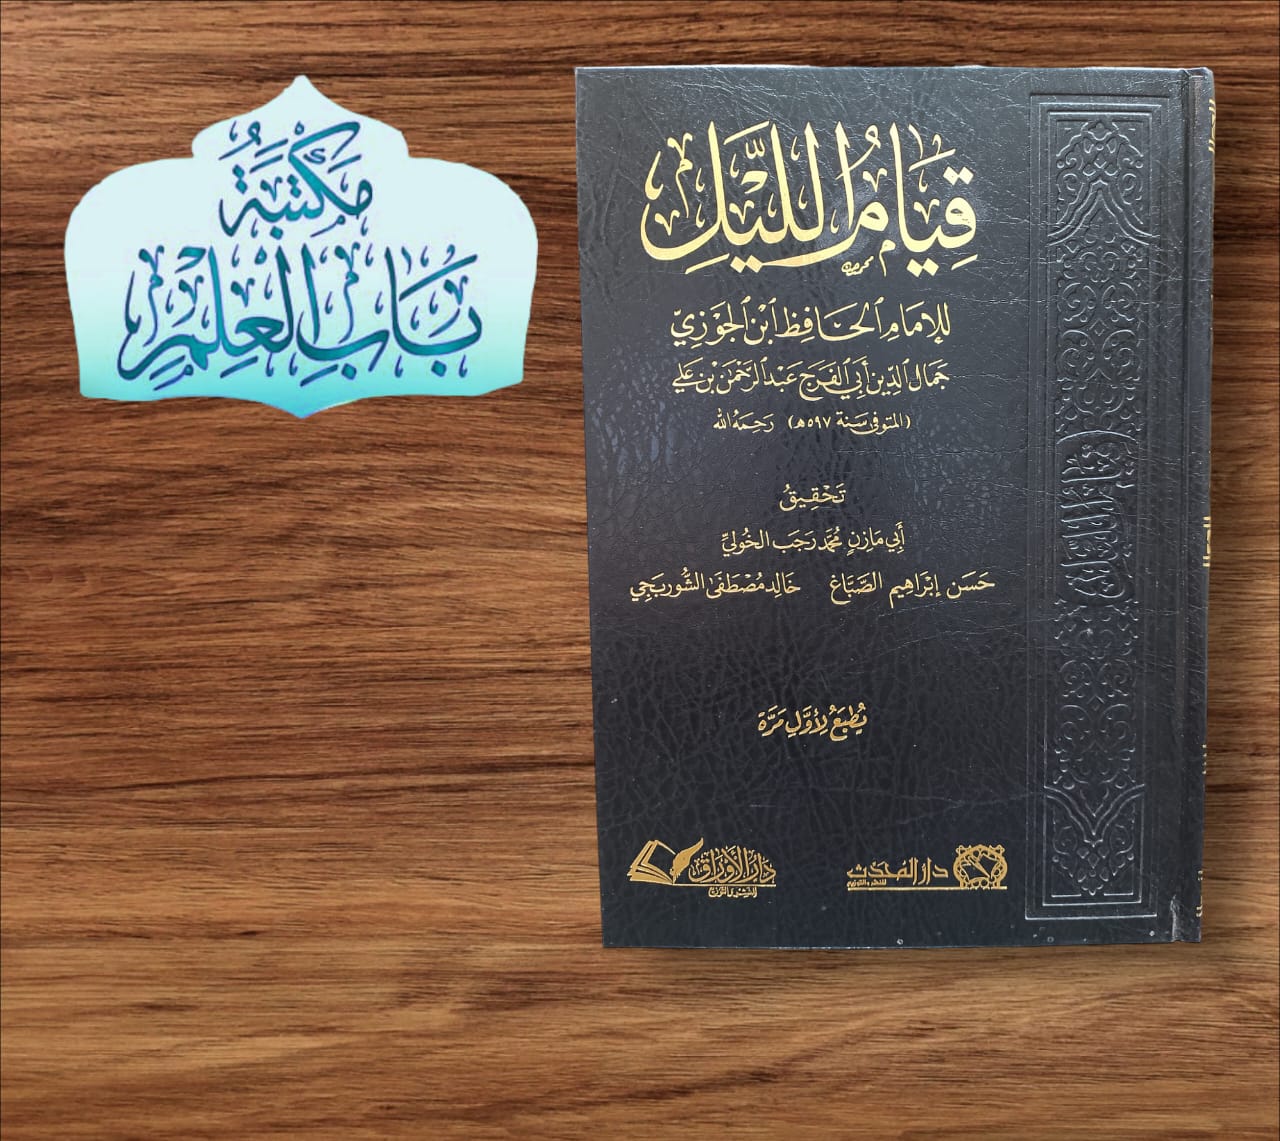 مَكْتَبَةُ
بَابِ الْعِلْمِ
قِيَامُ اللَّيْلِ
لِلإمَامِ الحَافِظ ابْن الجَوْزِيّ
جَمَال الدِّين أَبِي الفَرَج عَبْد الرَّحْمَن بْن عَلِي
(المتوفى سَنة ٥٩٧ هـ) رَحِمَهُ الله
تَحْقِيقُ
أَبِي مَازِنٍ مُحمَّد رَجَب الخُولِيِّ
حَسَن إِبْرَاهِيم الصَّبَّاغ خَالِد مُصْطَفَى الشُّورَبَجِي
يُطْبَعُ لِأَوَّلِ مَرَّة
دار المُحَدِّث
للنشر والتوزيع
دَارُ الأَوْرَاق
للنشر والتوزيع